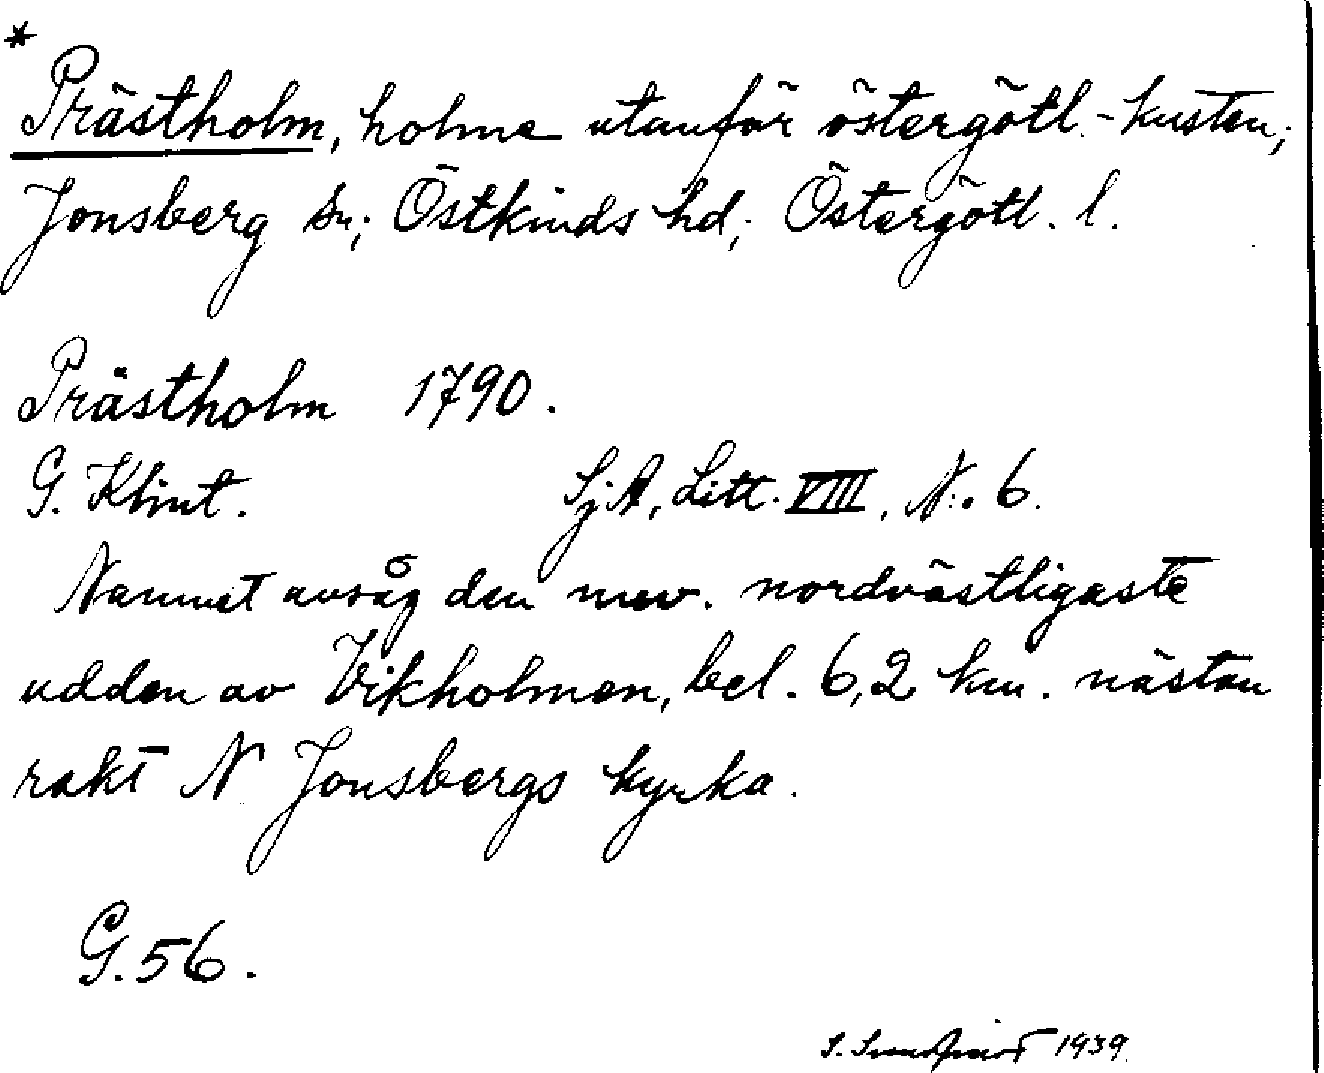 *
Prästholm, holme utanför östergötl.-kusten;
Jonsberg sn; Östkinds hd; Östergötl. l.
Prästholm 1790.
G. Klint. SjA, Litt. VIII, N:o 6.
Namnet avsåg den nuv. nordvästligaste
udden av Vikholmen, bel. 6,2 km. nästan
rakt N Jonsbergs kyrka.
G. 56.
S. 1939